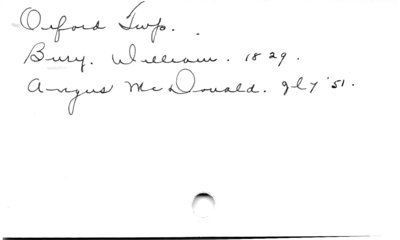 Orford Twp.
Bury. William. 1829.
Angus McDonald. gl 7 '51.